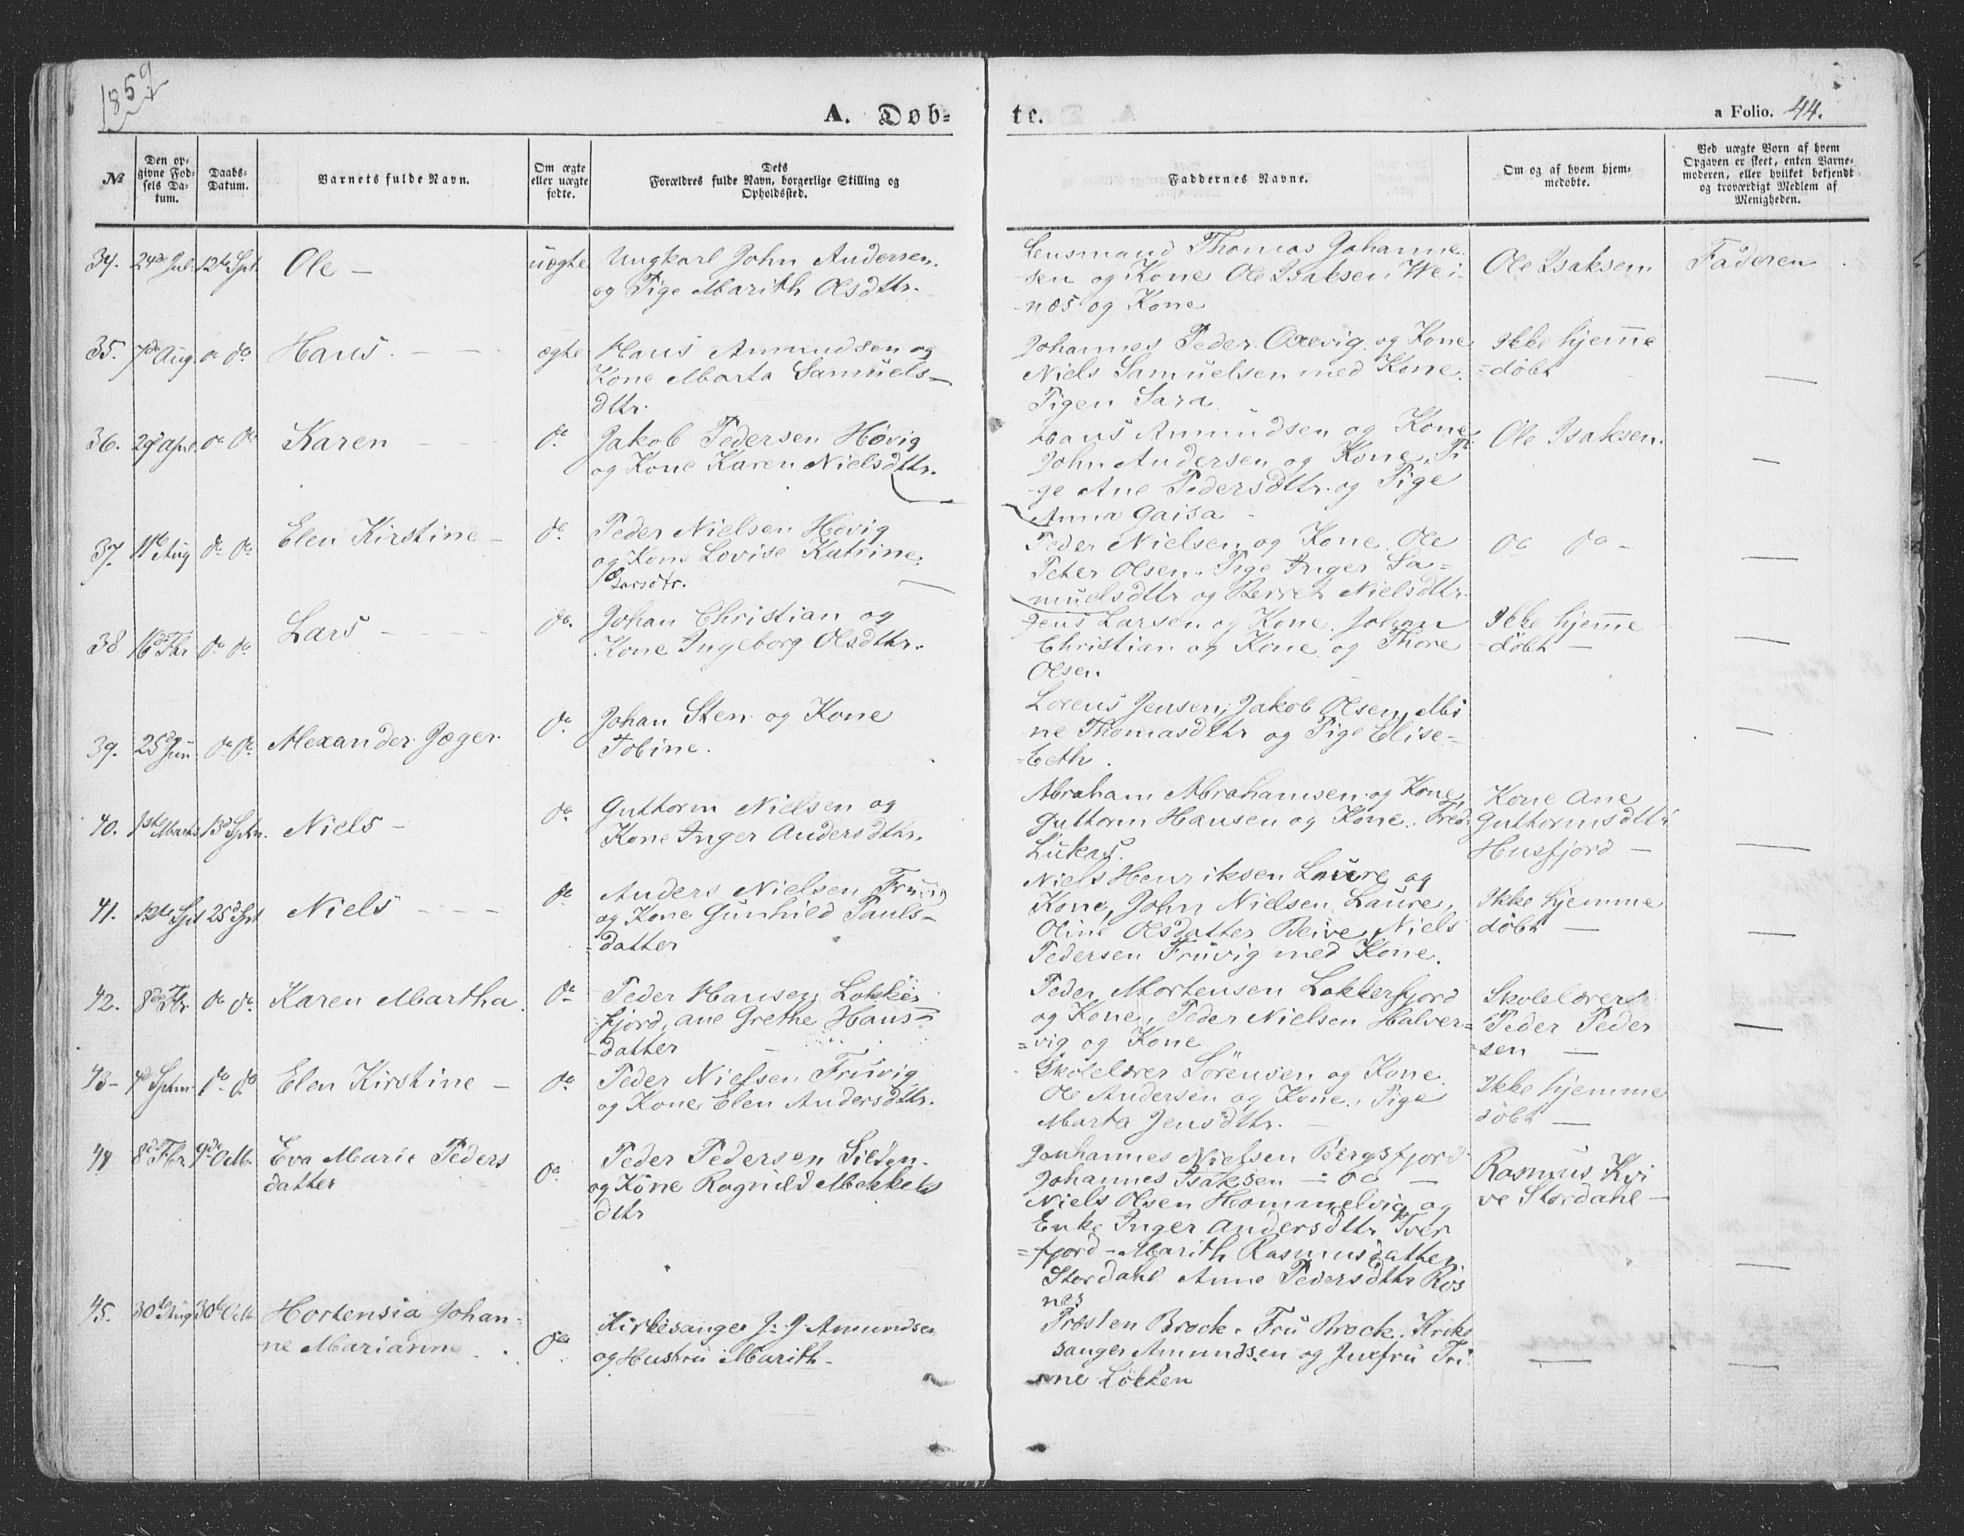 1859
A. Døb-
te.
a Folio. 44.
№
Den op-
givne Fød-
sels Da-
tum.
Daabs-
Datum.
Barnets fulde Navn.
Om ægte
eller uægte
fødte.
Dets
Forældres fulde Navn, borgerlige Stilling og
Opholdssted.
Faddernes Navne.
Om og af hvem hjem-
medøbte.
Ved uægte Børn af hvem
Opgaven er skeet, enten Barne-
moderen, eller hvilket bekjendt
og troværdigt Medlem af
Menigheden.
34. 24de Jul. 12te Spt. Ole — uægte
Ungkarl John Andersen
og Pige Marith Olsdttr.
Lensmand Thomas Johanne
sen og Kone Ole Isaksen Wei-
næs og Kone
Ole Isaksen
Faderen
35. 7de Aug. do do Hans. — — ægte
Hans Amundsen og
Kone Marta Samuels-
dttr.
Johannes Peder Oxevig og Kone
Niels Samuelsen med Kone.
Pigen Sara
Ikke hjemme
=døbt —
36. 29de Apr. do do Karen — — do
Jakob Pedersen Høvig
og Kone Karen Nielsdttr.
Hans Amundsen og Kone
John Andersen og Kone, Pi
ge Ane Pedersdttr. og Pige
Anna Gaisa —
Ole Isaksen. —
37. 11te Aug do do Elen Kirstine — do
Peder Nielsen Høvig
og Kone Lovise Katrine
Larsdtr.
Peder Nielsen og Kone. Ole
Peter Olsen. Pige Inger Sa-
muelsdttr og Berret Nielsdttr.
do do — —
38 16de Fbr do do Lars — — do.
Johan Christian og
Kone Ingeborg Olsdttr.
Jens Larsen og Kone. Johan
Christian og Kone og Thore
Olsen
Ikke hjemme
-døbt — —
39. 25de Jun do do Alexander Jæger. do
Johan Sten og Kone
Tobine.
Lorens Jensen, Jakob Olsen, Mi
ne Thomasdttr og Pige Elise-
=beth. —
40. 1ste Marts 13de Sptr. Niels — do
Guttorm Nielsen og
Kone Inger Andersdttr.
Abraham Abrahamsen og Kone
Guttorm Hansen og Kone. Fred.
Lukas.
Kone Ane
Guttormsdttr
Husfjord — —
41. 12te Spt 25de Spt Niels — — — do
Anders Nielsen Fruvig
og Kone Gunhild Pauls-
=datter
Niels Henriksen Laure og
Kone, John Nielsen Laure,
Oline Olsdatter Beive, Niels
Pedersen Fruvig med Kone.
Ikke hjemme
døbt — —
42. 8de Fbr do do Karen Martha. do
Peder Hansen, Lokker
fjord, ane Grethe Hans-
=datter
Peder Mortensen Lokkerfjord
og Kone, Peder Nielsen Halver-
=vig og Kone
Skolelærer
Peder Peder
sen — —
43- 4de Sptm do do Elen Kirstine — do
Peder Nielsen Fruvig
og Kone Elen Andersdttr.
Skolelærer Sörensen og Kone.
Ole Andersen og Kone. Pige
Marta Jensdttr. —
Ikke hjemme
døbt — —
44 8de Fbr. 9de Okt. Eva Marie Peders
datter do
Peder Pedersen Silden.
og Kone Ragnild Mekkels
dttr
Johannes Nielsen Bergsfjord
Johannes Isaksen —= do —
Niels Olsen Hammelvig og
Enke Inger Andersdttr Tver
=fjord - Marith Rasmusdatter
Stordahl Anne Pedersdttr Røs
nes
Rasmus
Stordahl — —
45. 30te Aug 30te Okt Hortensia Johan-
ne Marianne. do
Kirkesanger J. J. Amundsen
og Hustru Marith —
Præsten Brock. Fru Brock. Kirke
sanger Amundsen og Jumfru Tri
=ne Lökken